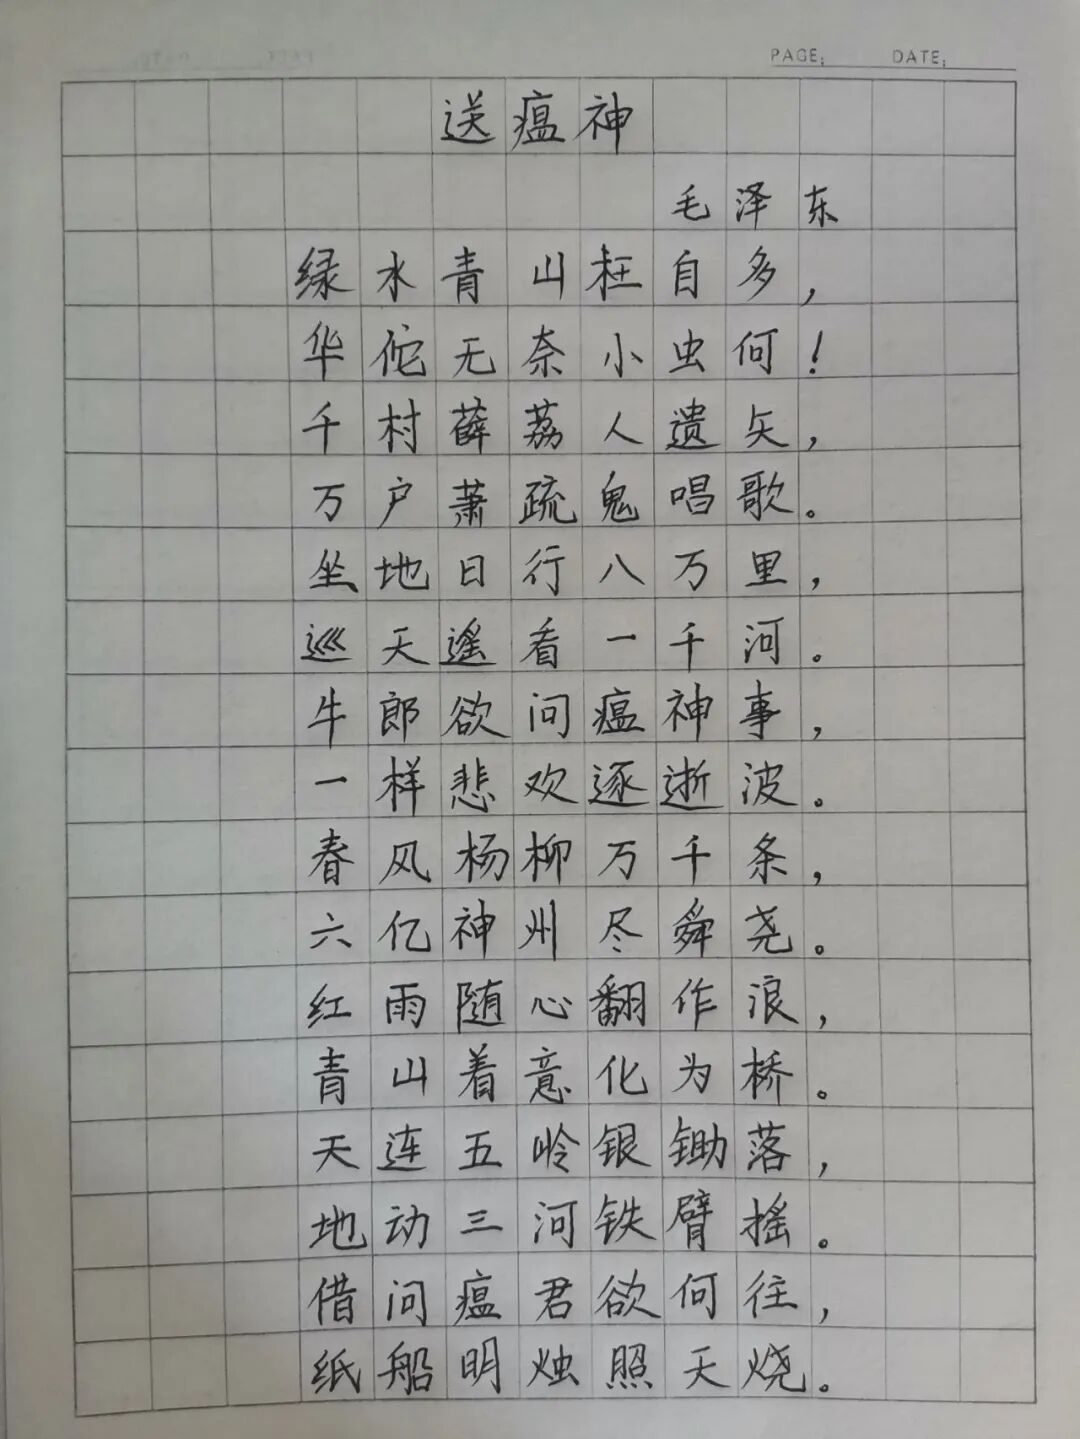 PAGE: DATE:
送瘟神
毛泽东
绿水青山枉自多,
华佗无奈小虫何!
千村薜荔人遗矢,
万户萧疏鬼唱歌。
坐地日行八万里,
巡天遥看一千河。
牛郎欲问瘟神事,
一样悲欢逐逝波。
春风杨柳万千条,
六亿神州尽舜尧。
红雨随心翻作浪,
青山着意化为桥。
天连五岭银锄落,
地动三河铁臂摇。
借问瘟君欲何往,
纸船明烛照天烧。